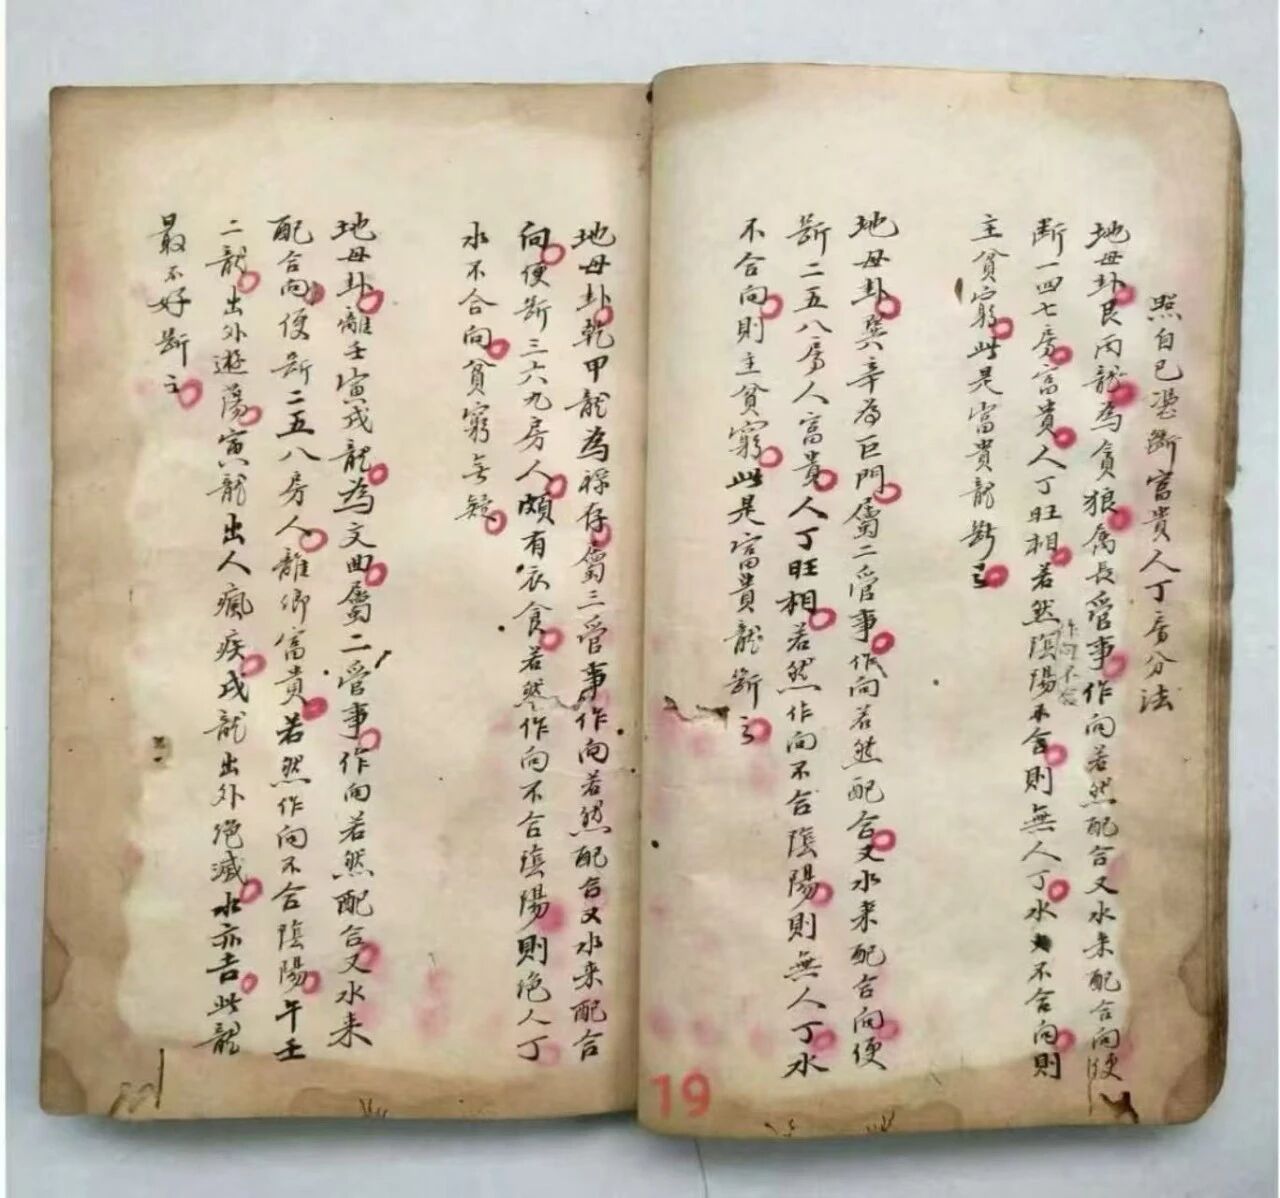 照自己憑斷富貴人丁房分法
地母卦艮丙龍為貪狼屬長管事作向若然配合又水来配合向便
断一四七房富貴人丁旺相若然陰陽不合則無人丁水不合向則
作向不合
主貧窮此是富貴龍断之
地母卦巽辛為巨門屬二管事作向若然配合又水来配合向便
斷二五八房人富貴人丁旺相若然作向不合陰陽則無人丁水
不合向則主貧窮此是富貴龍斷之
地母卦乾甲龍為祿存屬三管事作向若然配合又水来配合
向便斷三六九房人頗有衣食若然作向不合陰陽則絶人丁
水不合向貧窮無疑
地母卦離壬寅戌龍為文曲屬二管事作向若然配合又水来
配合向便斷二五八房人離鄉富貴若然作向不合陰陽午壬
二龍出外遊蕩寅龍出人瘋疾戌龍出外絶滅水亦吉此龍
最不好斷之
19